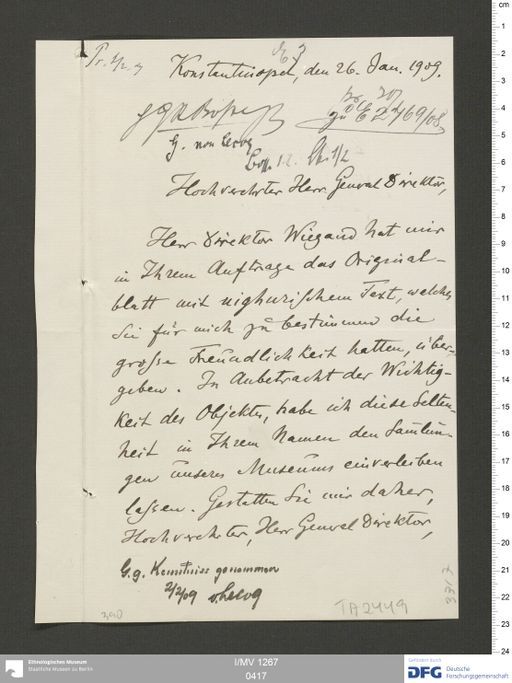 Pr. 2/2.09
Konstantinopel, den 26. Jan. 1909.
zu E 2469/08
H. von Lecoq
Hochverehrter Herr General Direktor,
Herr Direktor Wiegand hat mir
in Ihrem Auftrage das Original-
blatt mit uighurischem Text, welches
Sie für mich zu bestimmen die
große Freundlichkeit hatten, über-
geben. In Anbetracht der Wichtig-
keit des Objektes, habe ich diese Selten-
heit in Ihrem Namen den Samlun-
gen unseres Museums einverleiben
lassen. Gestatten Sie mir daher,
Hochverehrter, Herr General Direktor,
G. g. Kenntniss genommen
2/2/09 v. Lecoq
TA 2449
I/MV 1267
0417
Ethnologisches Museum
Staatliche Museen zu Berlin
Gefördert durch
DFG Deutsche
Forschungsgemeinschaft